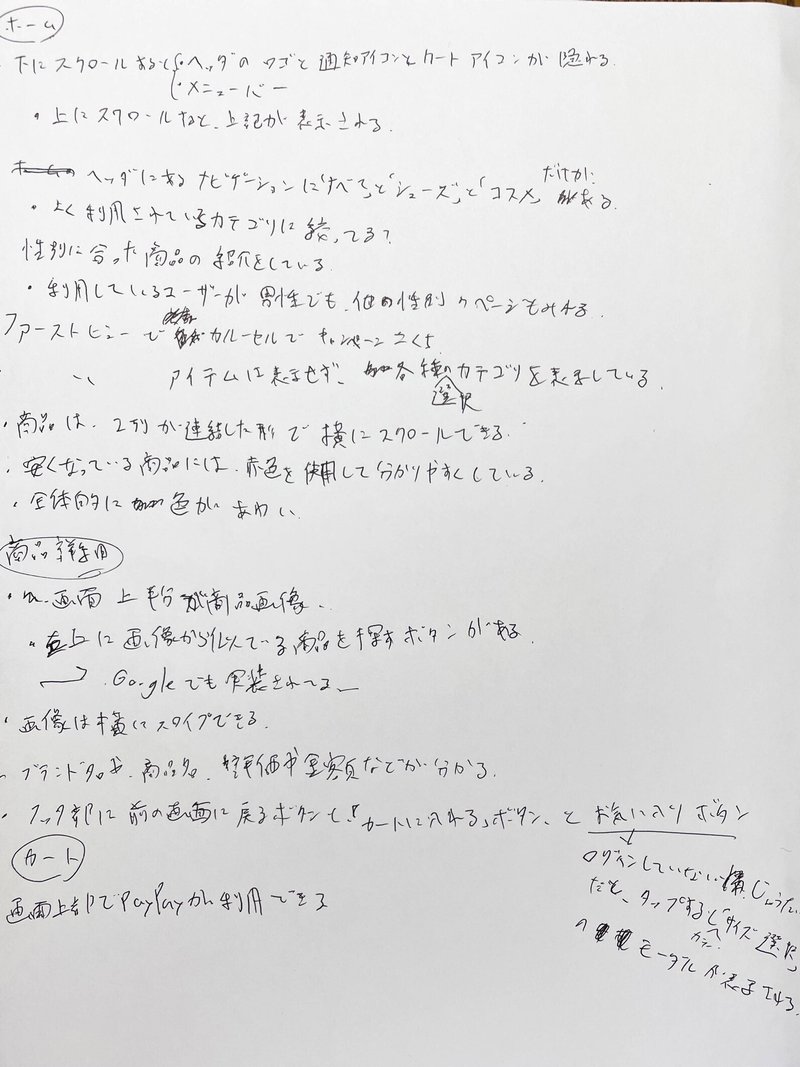 ホーム
・下にスクロールすると ・ヘッダのロゴと通知アイコンとカートアイコンが隠れる
・メニューバー
・上にスクロールすると、上記が表示される
ヘッダにあるナビゲーションに「すべて」と「シューズ」と「コスメ」だけがある
・よく利用されているカテゴリに絞ってる?
性別に合った商品の紹介をしている
・利用しているユーザーが男性でも、他の性別のページもみれる
ファーストビューで カルーセルでキャンペーン
〃 アイテムは表示せず、各種の選択カテゴリを表示している
・商品は、2列が連結した形で横にスクロールできる
・安くなっている商品には、赤色を使用して分かりやすくしている
・全体的に色があわい
商品詳細
・画面上半分が商品画像
・右上に画像から似ている商品を探すボタンがある
→ Googleでも実装されてる
・画像は横にスワイプできる
・ブランド名や、商品名、評価や金額などが分かる
・フッタ部に前の画面に戻るボタンと、「カートに入れる」ボタン、とお気に入りボタン
ログインしていない じょうたい
だと、タップすると「サイズ選択」
カラー?
のモーダルが表示される
カート
画面上部でPayPayが利用できる